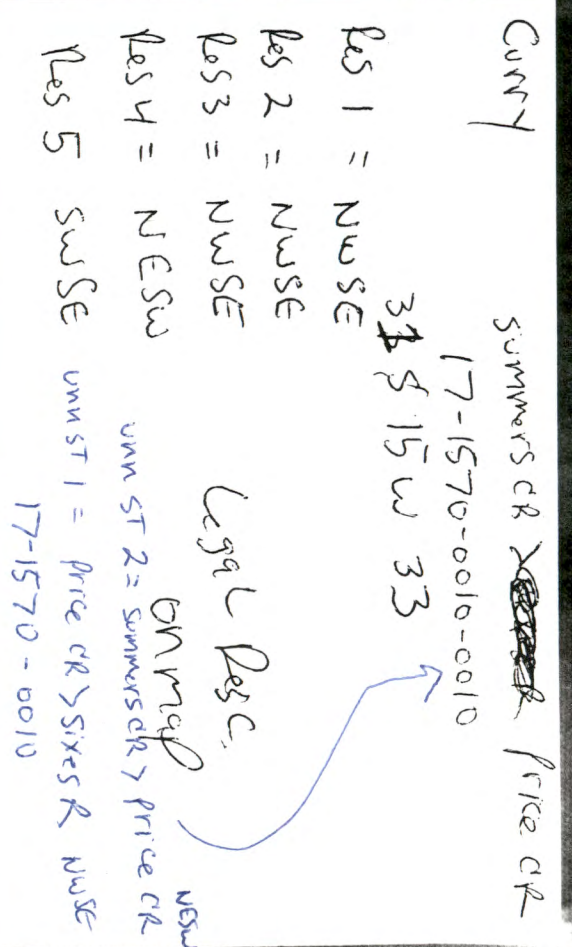 Curry summers CR > Price CR
17-1570-0010-0010
31 S 15 W 33
Res 1 = NWSE
Res 2 = NWSE
Res 3 = NWSE
Res 4 = NESW
Res 5 SWSE
Legal Desc.
on map
unn ST 2 = summers CR > Price CR NESW
unn ST 1 = Price CR > Sixes R NWSE
17-1570-0010